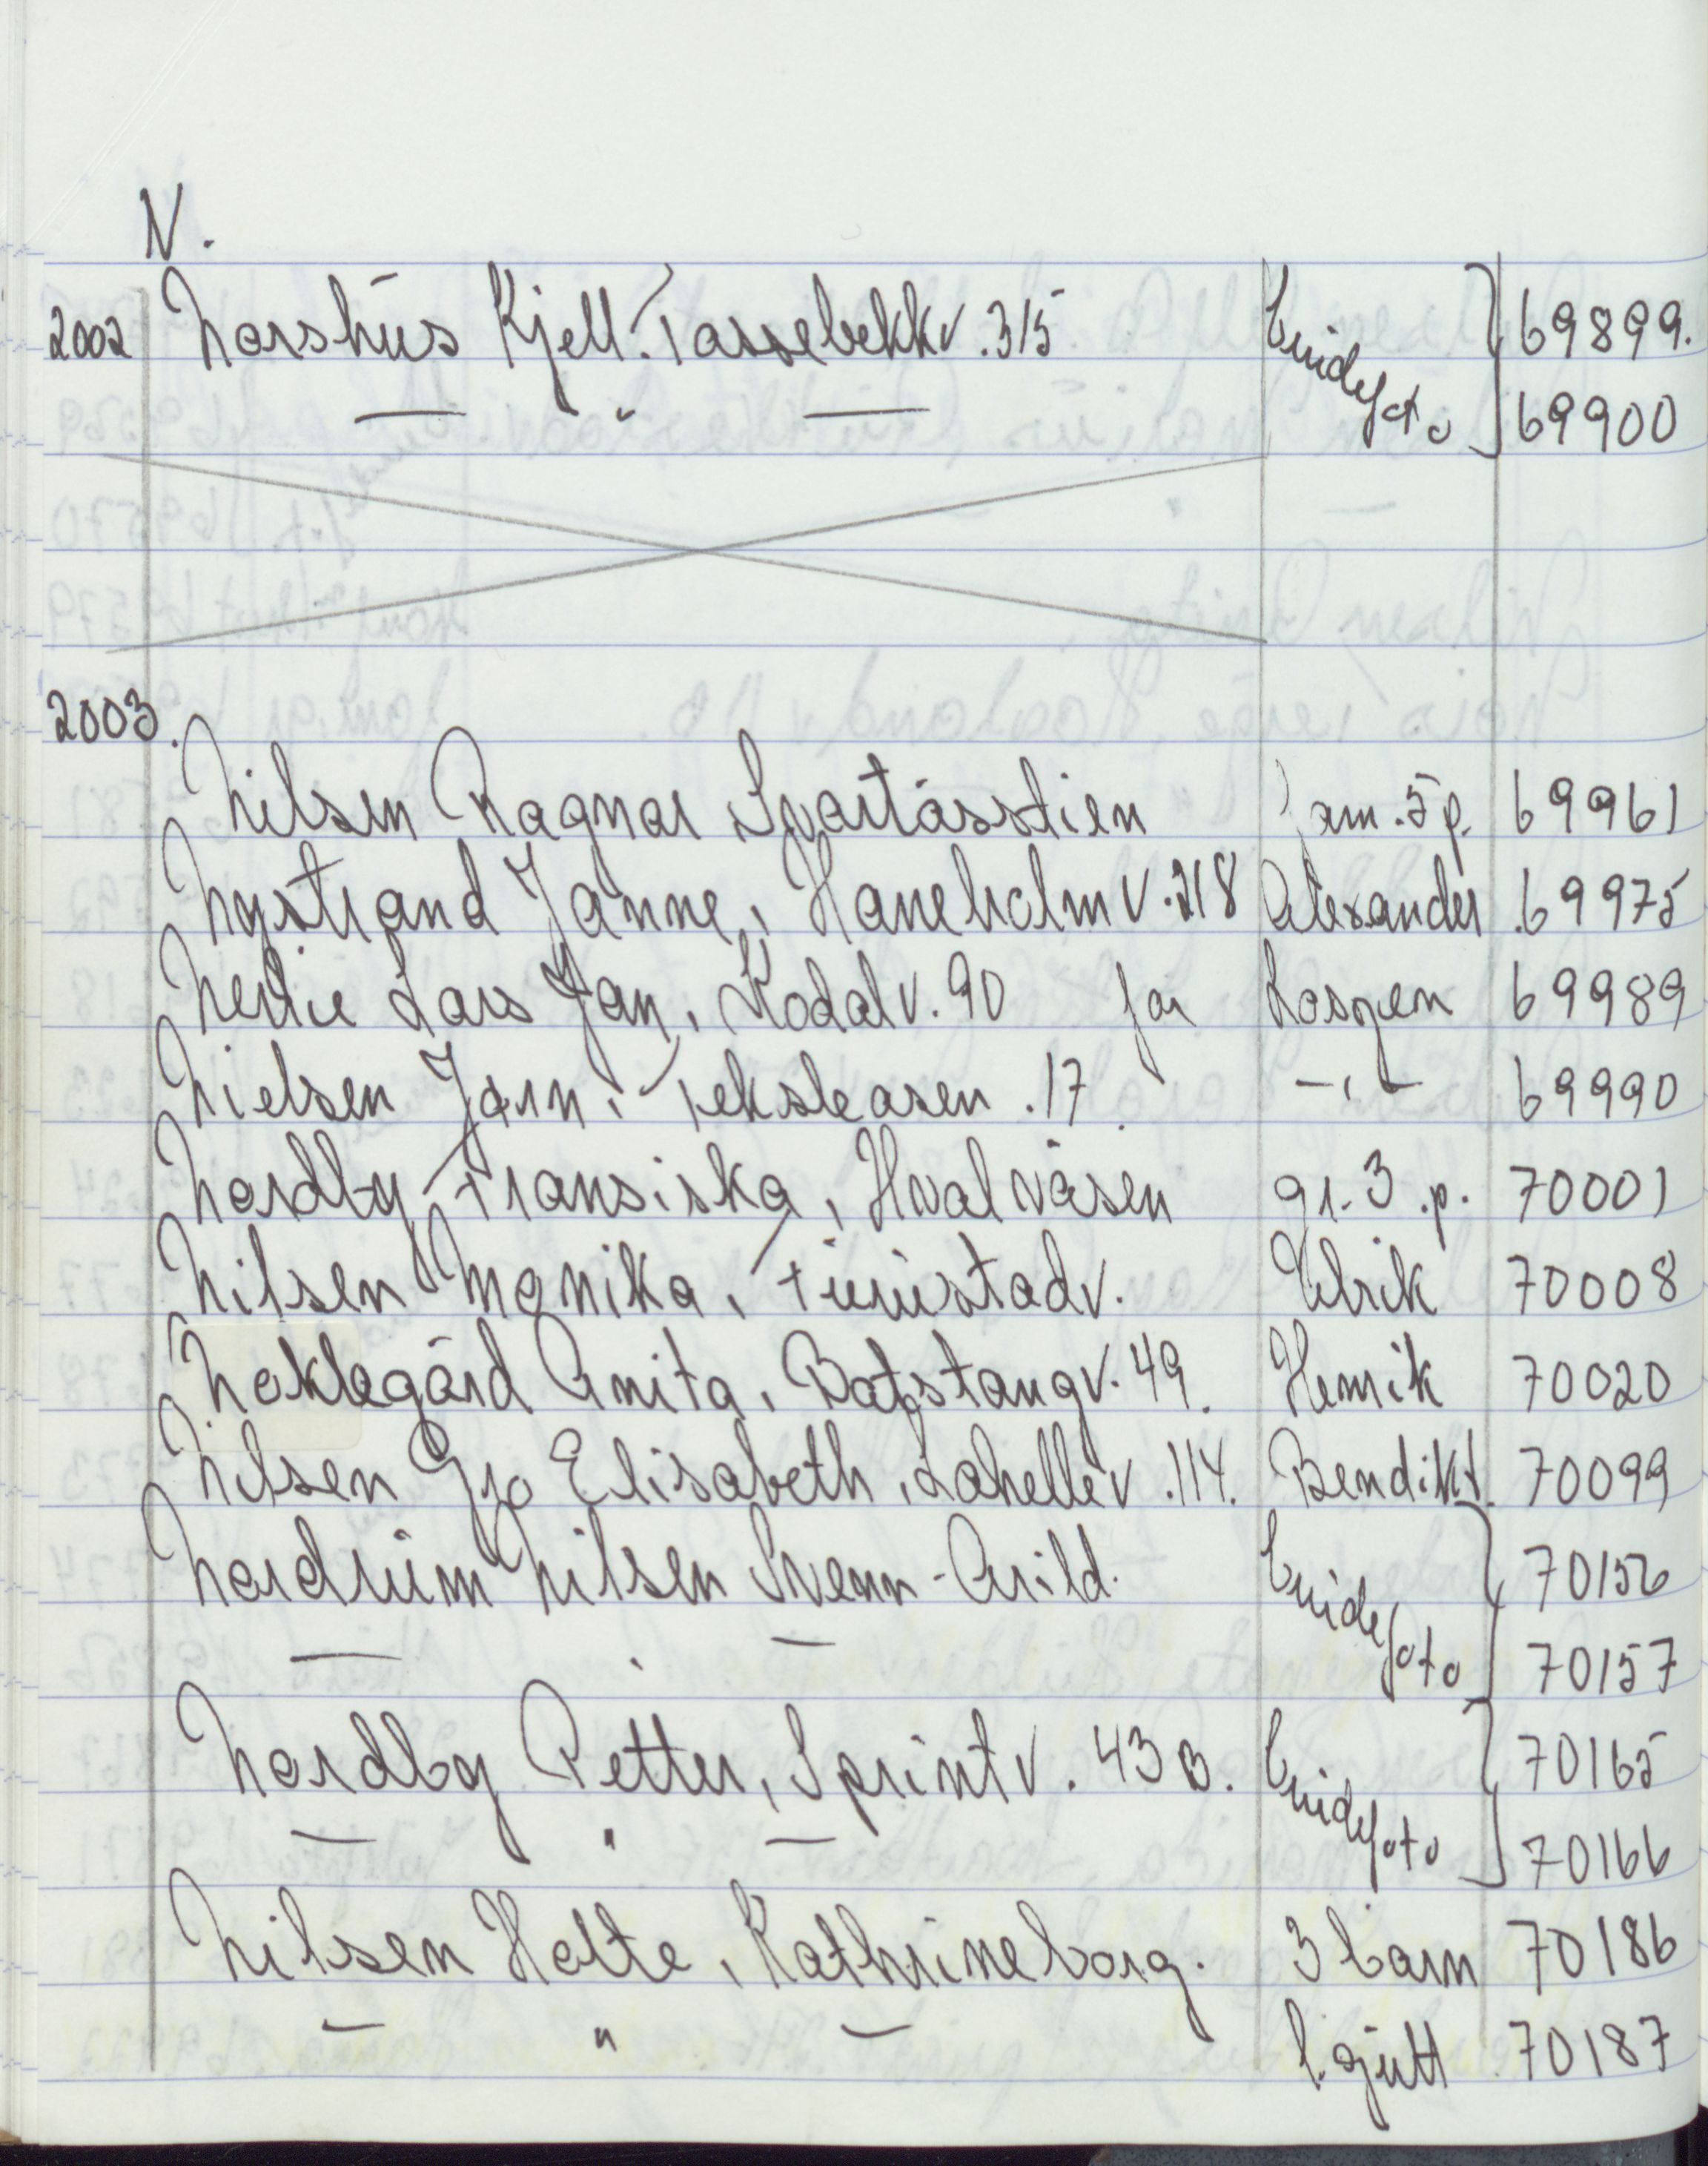 N.
2002 Norshus Kjell. Tassebekkv. 315 Brudefoto 69899.
— " — 69900
2003.
Nilsen Ragnar, Svartåsstien fam. 5 p. 69961
Nystrand Janne, Haneholmv. 218 Alexander 69975
Nerlie Lars Jan, Kodalv. 90 for Kaspen 69989
Nielsen Jørn, Teksleåsen. 17 — " — 69990
Nordby Fransiska, Hvalvåsen gr. 3. p. 70001
Nilsen Monika, Furustadv. Ulrik 70008
Noklegård Anita, Båtstangv. 49. Henrik 70020
Nilsen Gro Elisabeth, Lahellev. 114. Bendikt. 70099
Nordrum Nilsen Svenn-Arild. Brudefoto 70156
— " — 70157
Nordby Petter, Sprintv. 43 B. Brudefoto 70165
— " — 70166
Nilsen Hotte, Kathrineborg. 3 barn 70186
— " — l. gutt 70187